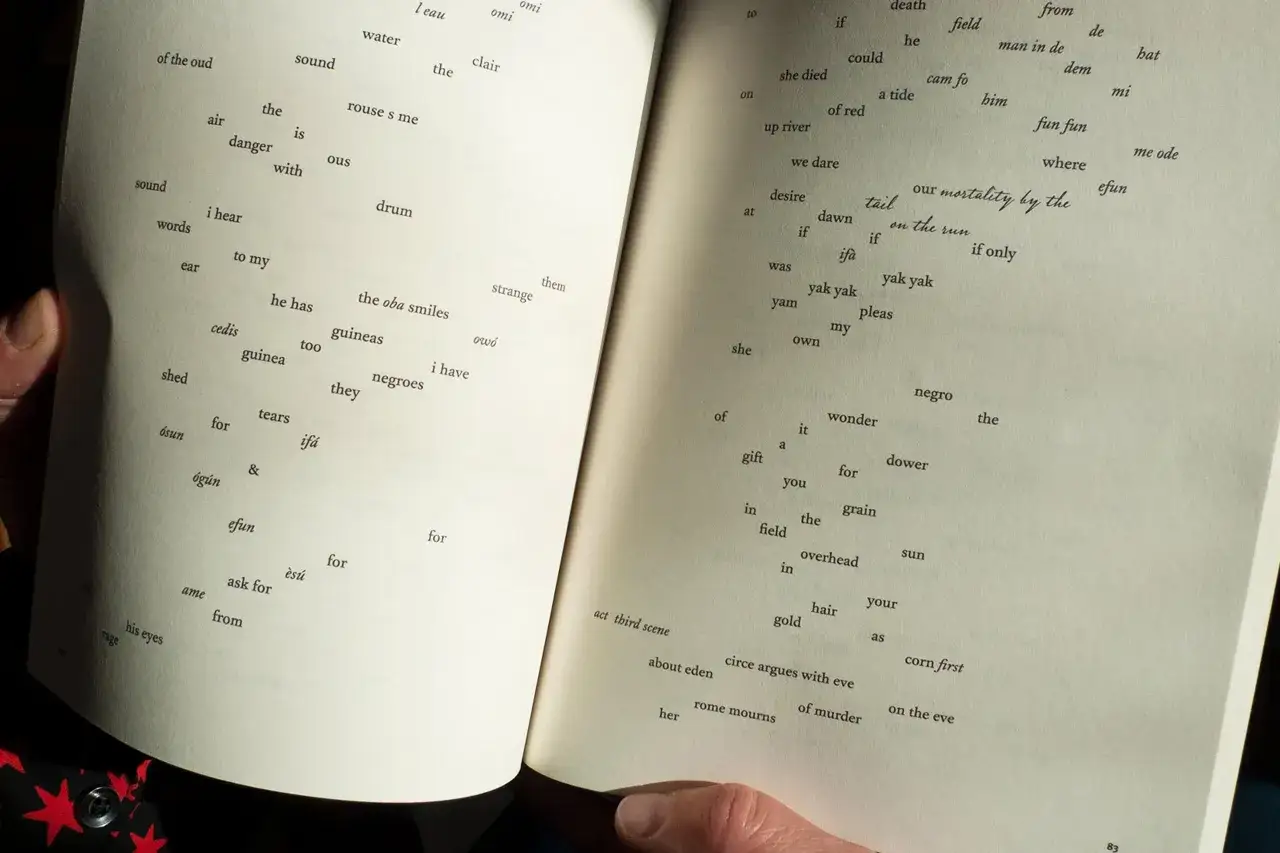 l eau omi omi
water
of the oud sound the clair
the rouse s me
air is
danger ous
with
sound
drum
i hear
words
to my
ear strange them
he has the oba smiles
cedis guineas owó
guinea too i have
shed they negroes
for tears
ósun ifá
&
ógún
efun for
for
ask for èsú
ame
from
rage his eyes
to death from
if field de
he man in de hat
could dem
she died cam fo mi
on a tide him
of red fun fun
up river me ode
we dare where
our mortality by the efun
desire tail
at dawn on the run
if if if only
ifà
was yak yak
yak yak
yam pleas
my
own
she
negro
of wonder the
it
a
gift for dower
you
in the grain
field
overhead sun
in
hair your
gold as
corn first
act third scene
about eden circe argues with eve
her rome mourns of murder on the eve
83